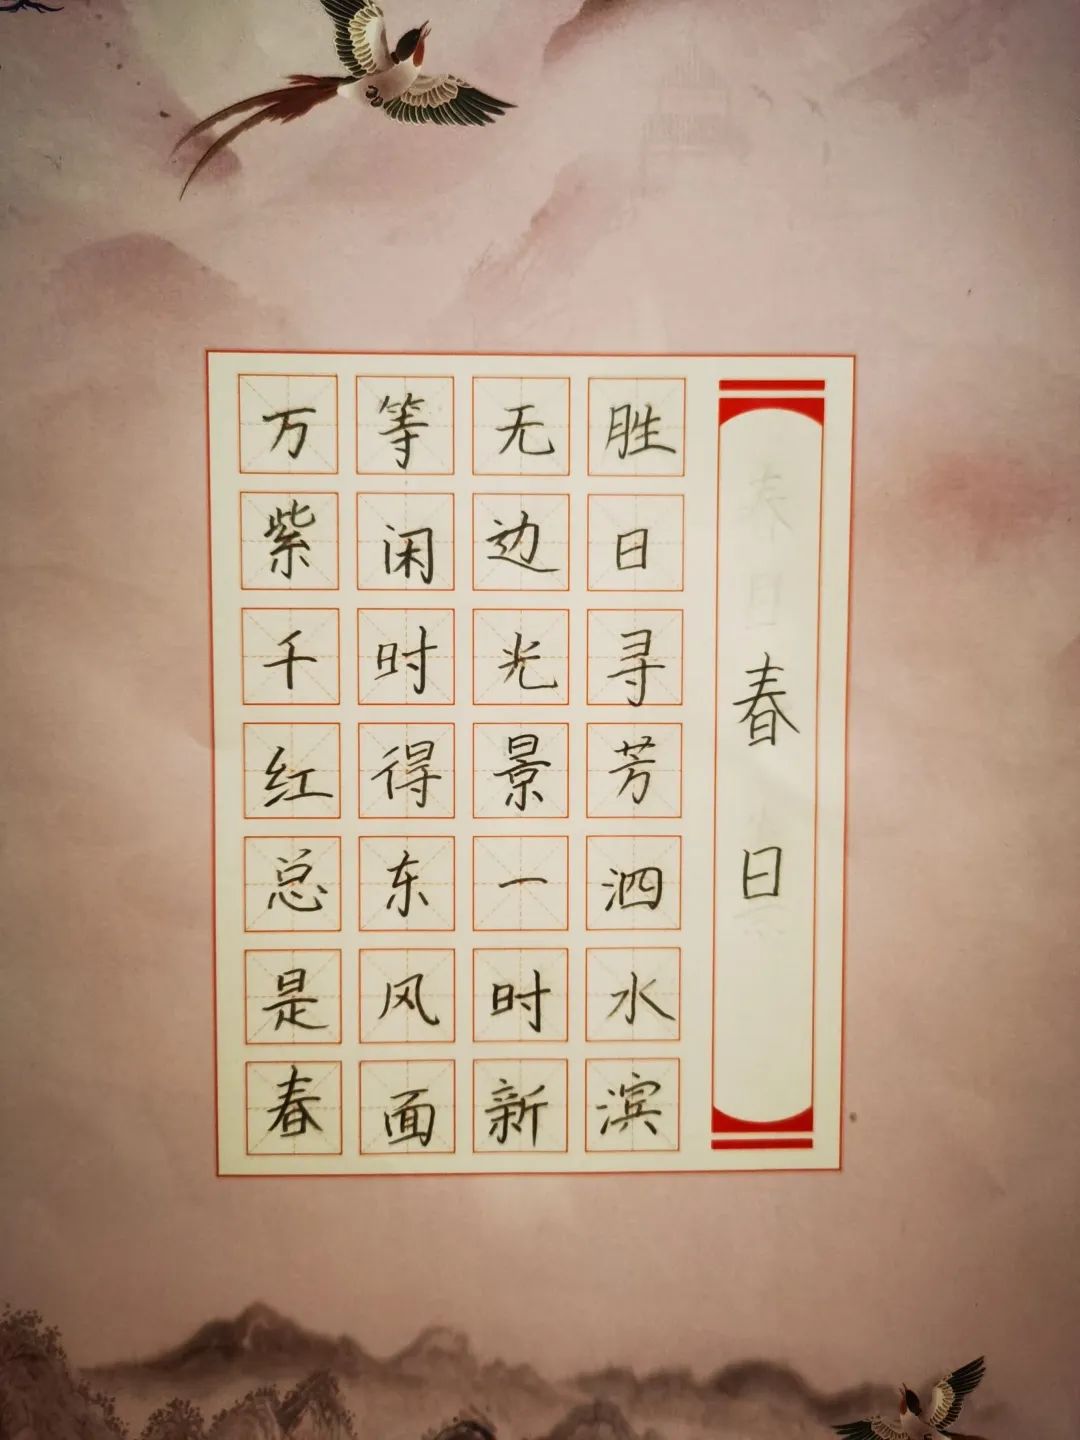 春日
胜日寻芳泗水滨
无边光景一时新
等闲时得东风面
万紫千红总是春